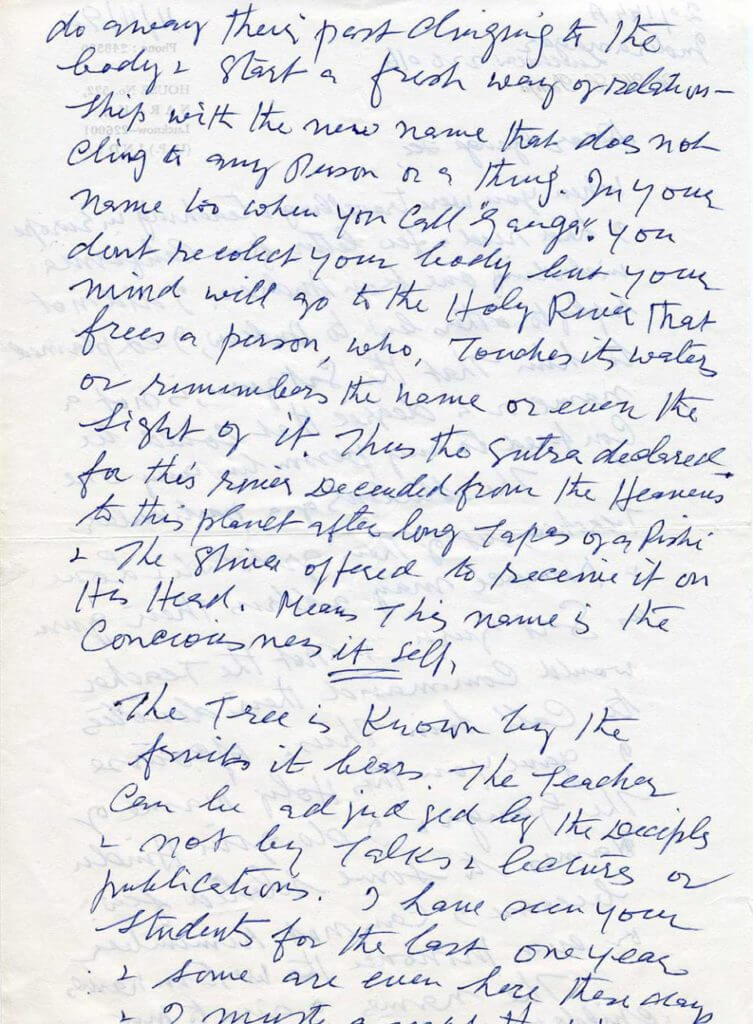 do away their past clinging to the
body & start a fresh way of relation-
ship with the new name that does not
cling to any Person or a Thing. In your
name too when you call "Ganga". You
dont recolect your body but your
mind will go to the Holy River that
frees a person, who, Touches its waters
or rimimbers the name or even the
Sight of it. Thus the Sutra declared
for this river Decended from the Heavens
to this planet after long Tapas of a Rishi
& The Shiva offered to receive it on
His Head. Means This name is the
Conciousness it self.
The Tree is Known by the
fruits it bears. The Teacher
Can be adjudged by the Deciples
& not by Talks & lectures or
publications. I have seen your
Students for the last one year
& some are even here these days
& I must